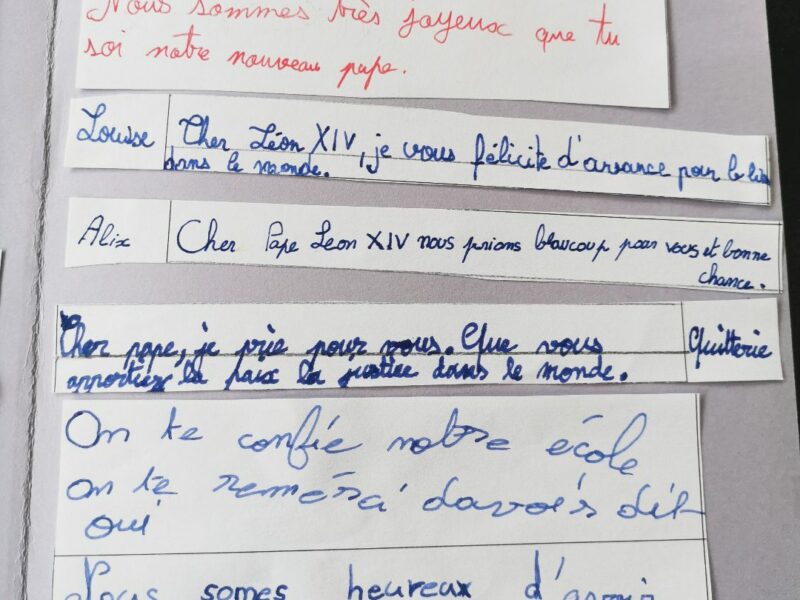 Nous sommes très joyeux que tu
soi notre nouveau pape.
Louise Cher Léon XIV, je vous félicite d'avance pour le bien
dans le monde.
Alix Cher Pape Leon XIV nous prions beaucoup pour vous et bonne
chance.
Cher pape, je prie pour vous. Que vous Quitterie
apportiez la paix la justice dans le monde.
On te confie notre école
on te remérsi davoirs dit
oui
Nous somes heureux d'avoir